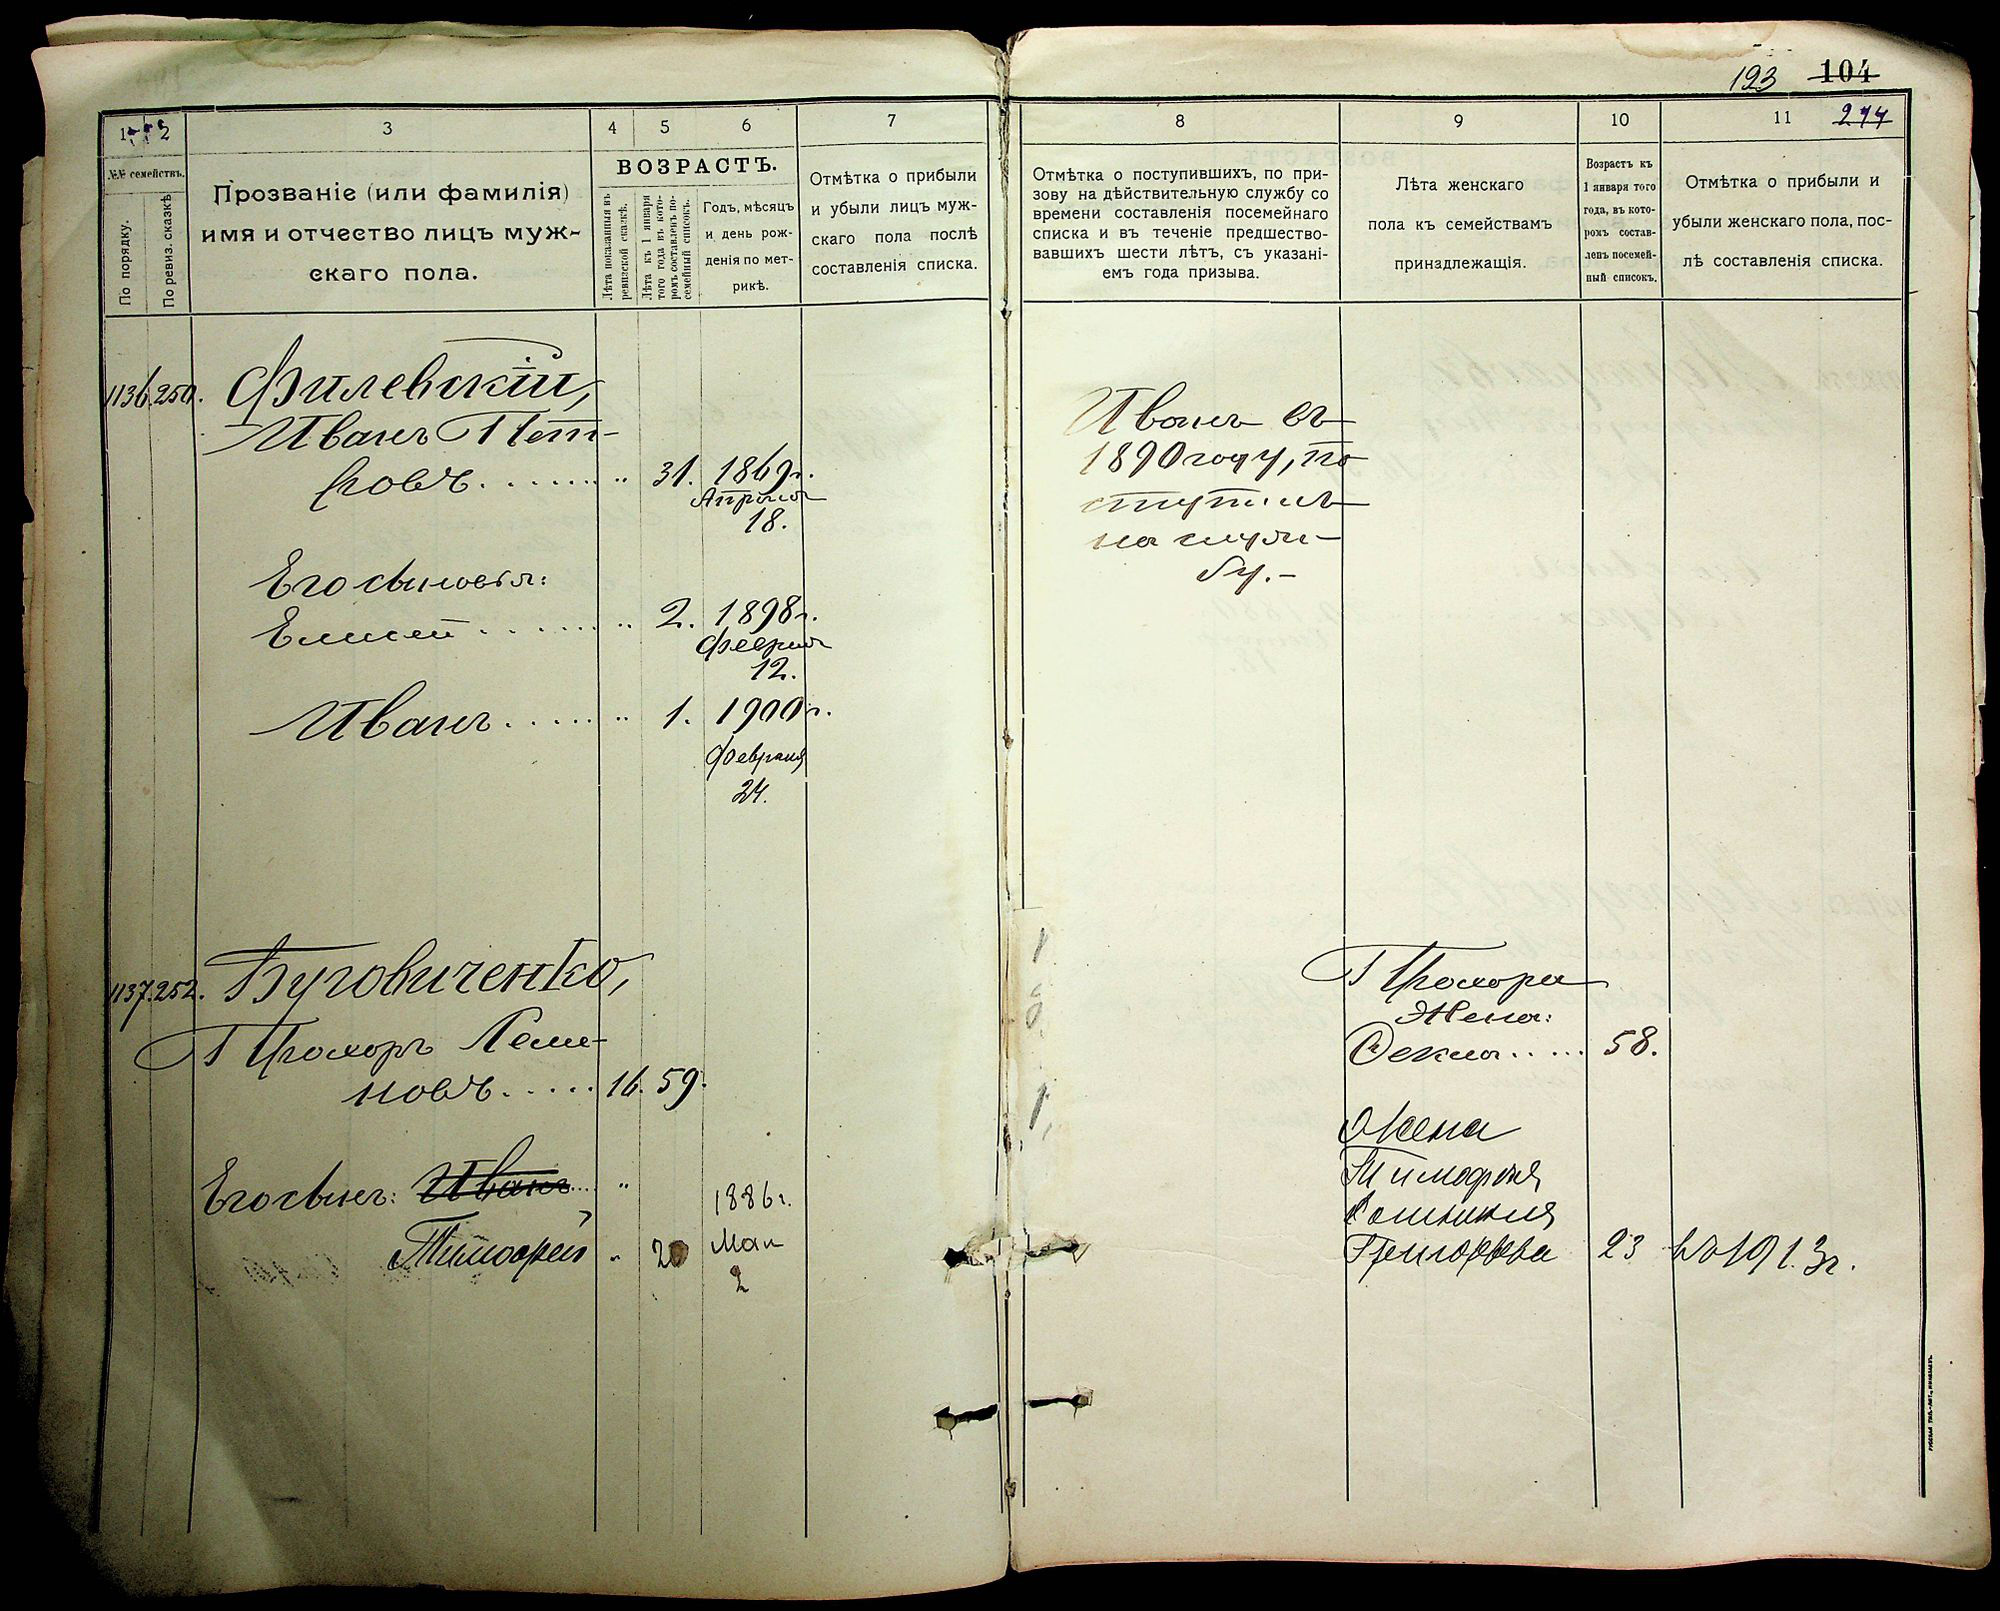 193 104
1 2 3 4 5 6 7
8 9 10 11 274
№№ семействъ.
По порядку.
По ревиз. сказкѣ
Прозваніе (или фамилія)
имя и отчество лицъ муж-
скаго пола.
ВОЗРАСТЪ.
Лѣта показанныя въ
ревизской сказкѣ.
Лѣта къ 1 января
того года въ кото-
ромъ составленъ по-
семейный списокъ.
Годъ, мѣсяцъ
и день рож-
денія по мет-
рикѣ.
Отмѣтка о прибыли
и убыли лицъ муж-
скаго пола послѣ
составленія списка.
Отмѣтка о поступившихъ, по при-
зову на дѣйствительную службу со
времени составленія посемейнаго
списка и въ теченіе предшество-
вавшихъ шести лѣтъ, съ указані-
емъ года призыва.
Лѣта женскаго
пола къ семействамъ
принадлежащія.
Возрастъ къ
1 января того
года, въ кото-
ромъ состав-
ленъ посемей-
ный списокъ.
Отмѣтка о прибыли и
убыли женскаго пола, пос-
лѣ составленія списка.
1136. 250. Филевскій,
Иванъ Пет-
ровъ........ „ 31. 1869 г.
Апрѣля
18.
Его сыновья:
Елисей ....... „ 2. 1898 г.
Февраля
12.
Иванъ ...... „ 1. 1900 г.
Февраля
24.
Иванъ въ
1890 году, по
ступилъ
на служ-
бу.-
1137. 252. Буговиченко,
Прохоръ Семе-
новъ..... 16. 59.
Его сынъ: Иванъ.... „ 1886 г.
Тимофей „ 20 Мая
2
Прохора
Жена:
Ѳекла..... 58.
Жена
Тимофея
Григорьева 23 въ 1913 г.